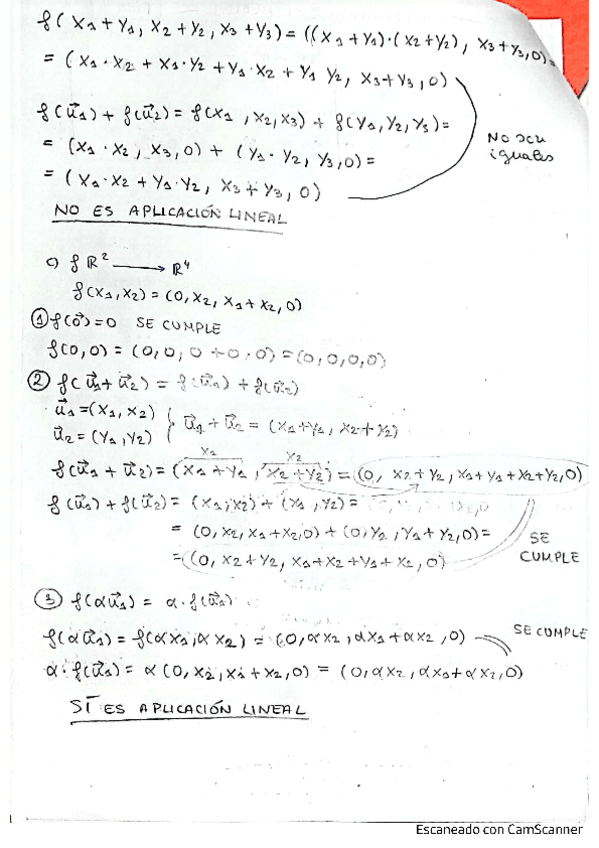 f(x₁+y₁, x₂+y₂, x₃+y₃) = ((x₁+y₁)·(x₂+y₂), x₃+y₃,0)=
= (x₁·x₂ + x₁·y₂ + y₁·x₂ + y₁ y₂, x₃+y₃,0)
f(u⃗₁) + f(u⃗₂) = f(x₁,x₂,x₃) + f(y₁,y₂,y₃)=
= (x₁·x₂, x₃,0) + (y₁·y₂, y₃,0)=
= (x₁·x₂ + y₁·y₂, x₃+y₃, 0)
No son
iguales
NO ES APLICACIÓN LINEAL
c) f ℝ² → ℝ⁴
f(x₁,x₂) = (0,x₂, x₁+x₂,0)
① f(0⃗)=0 SE CUMPLE
f(0,0) = (0,0,0+0,0) = (0,0,0,0)
② f(u⃗₁+u⃗₂) = f(u⃗₁) + f(u⃗₂)
u⃗₁=(x₁,x₂)
u⃗₂=(y₁,y₂) } u⃗₁+u⃗₂ = (x₁+y₁, x₂+y₂)
x₁ x₂
f(u⃗₁+u⃗₂) = (x₁+y₁, x₂+y₂) = (0, x₂+y₂, x₁+y₁+x₂+y₂,0)
f(u⃗₁) + f(u⃗₂) = (x₁,x₂) + (y₁,y₂) =
= (0,x₂,x₁+x₂,0) + (0,y₂,y₁+y₂,0)=
= (0, x₂+y₂, x₁+x₂+y₁+x₂,0)
SE
CUMPLE
③ f(αu⃗₁) = α·f(u⃗₁)
f(αu⃗₁) = f(αx₁,αx₂) = (0,αx₂,αx₁+αx₂,0)
SE CUMPLE
α·f(u⃗₁) = α(0,x₂,x₁+x₂,0) = (0,αx₂,αx₁+αx₂,0)
SÍ ES APLICACIÓN LINEAL
Escaneado con CamScanner